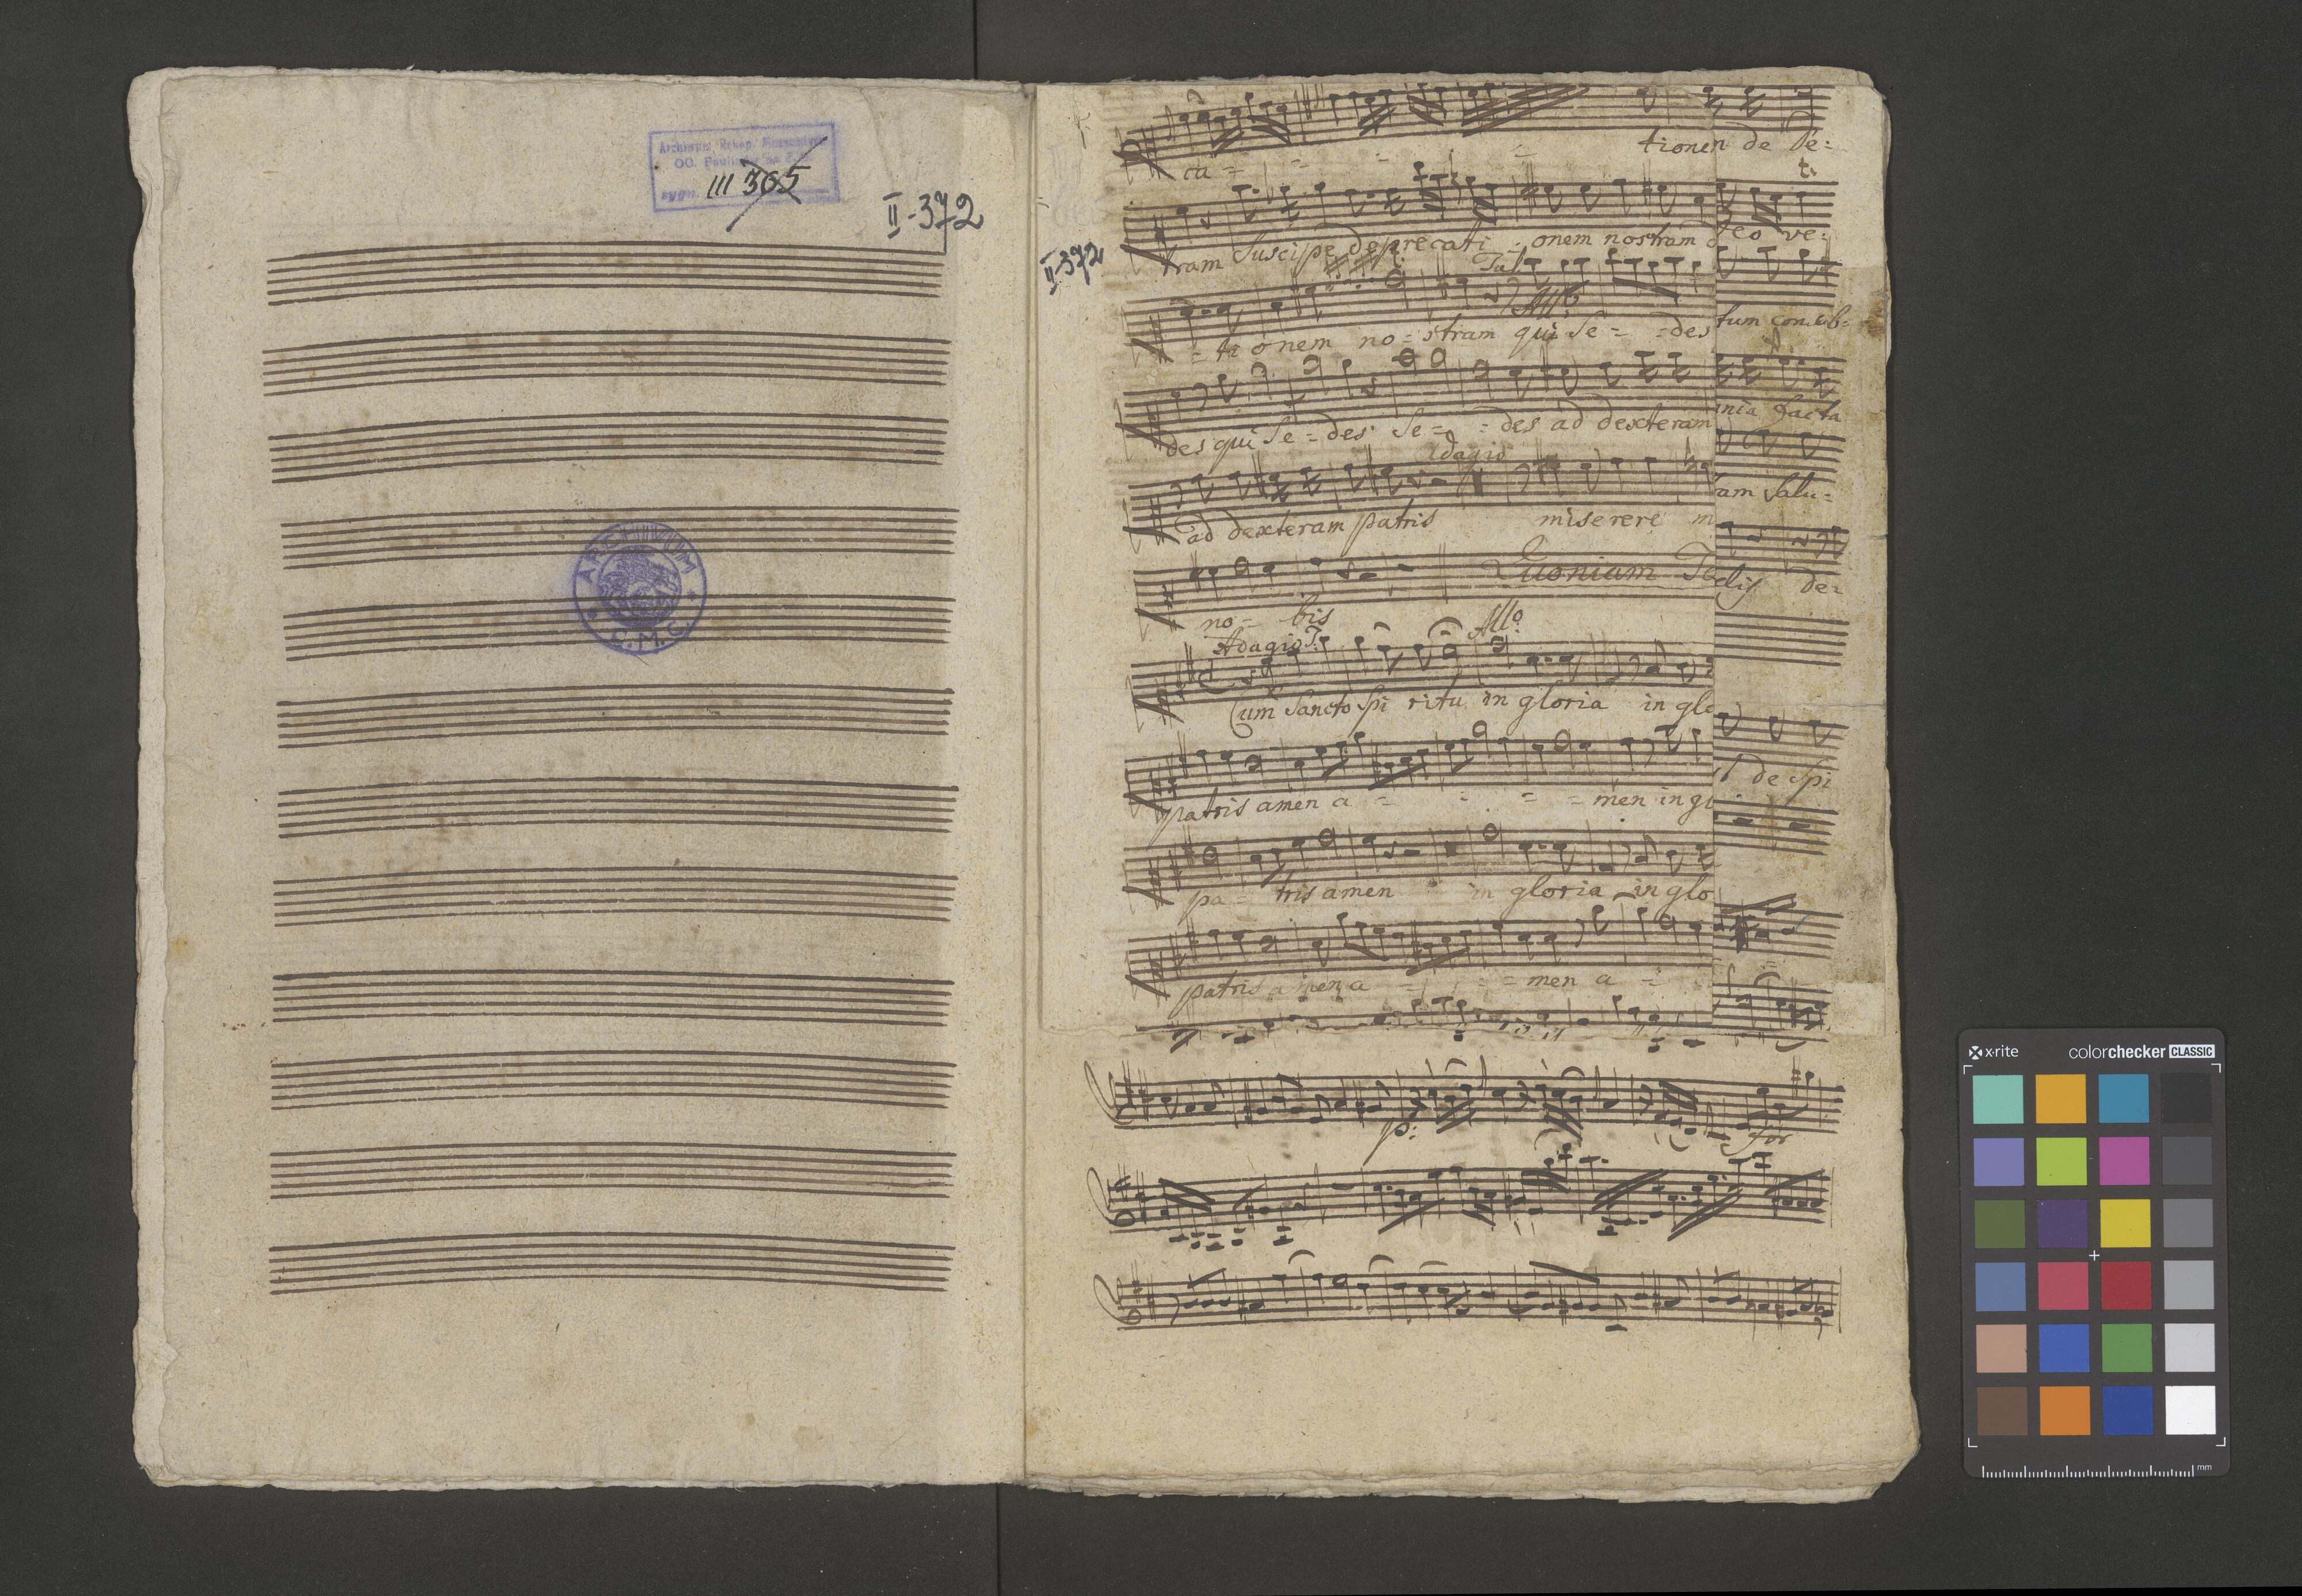 Archiwum Rękop. Muzycznych
OO. Paulinów na
sygn. III 365
II-372
ARCHIVUM
C.M.C.
II-372
ca = = = = tionen de De:
t.
tram Suscipe deprecati = onem nostram
Deo ve:
Tut
Allo
= ti onem no = stram qui Se = = des
tum con sub=
des qui Se = des Se = = des ad dexteram
nia facta
Adagio
ad dexteram patris miserere m
ram Salu=
Quoniam T
no = bis
elis de=
Adagio T. Allo
Cum Sancto Spi ritu in gloria in glo
patris amen a = = = = men in gl
de Spi
pa = tris amen in gloria in glo
patris amen a = = = men a =
p: for